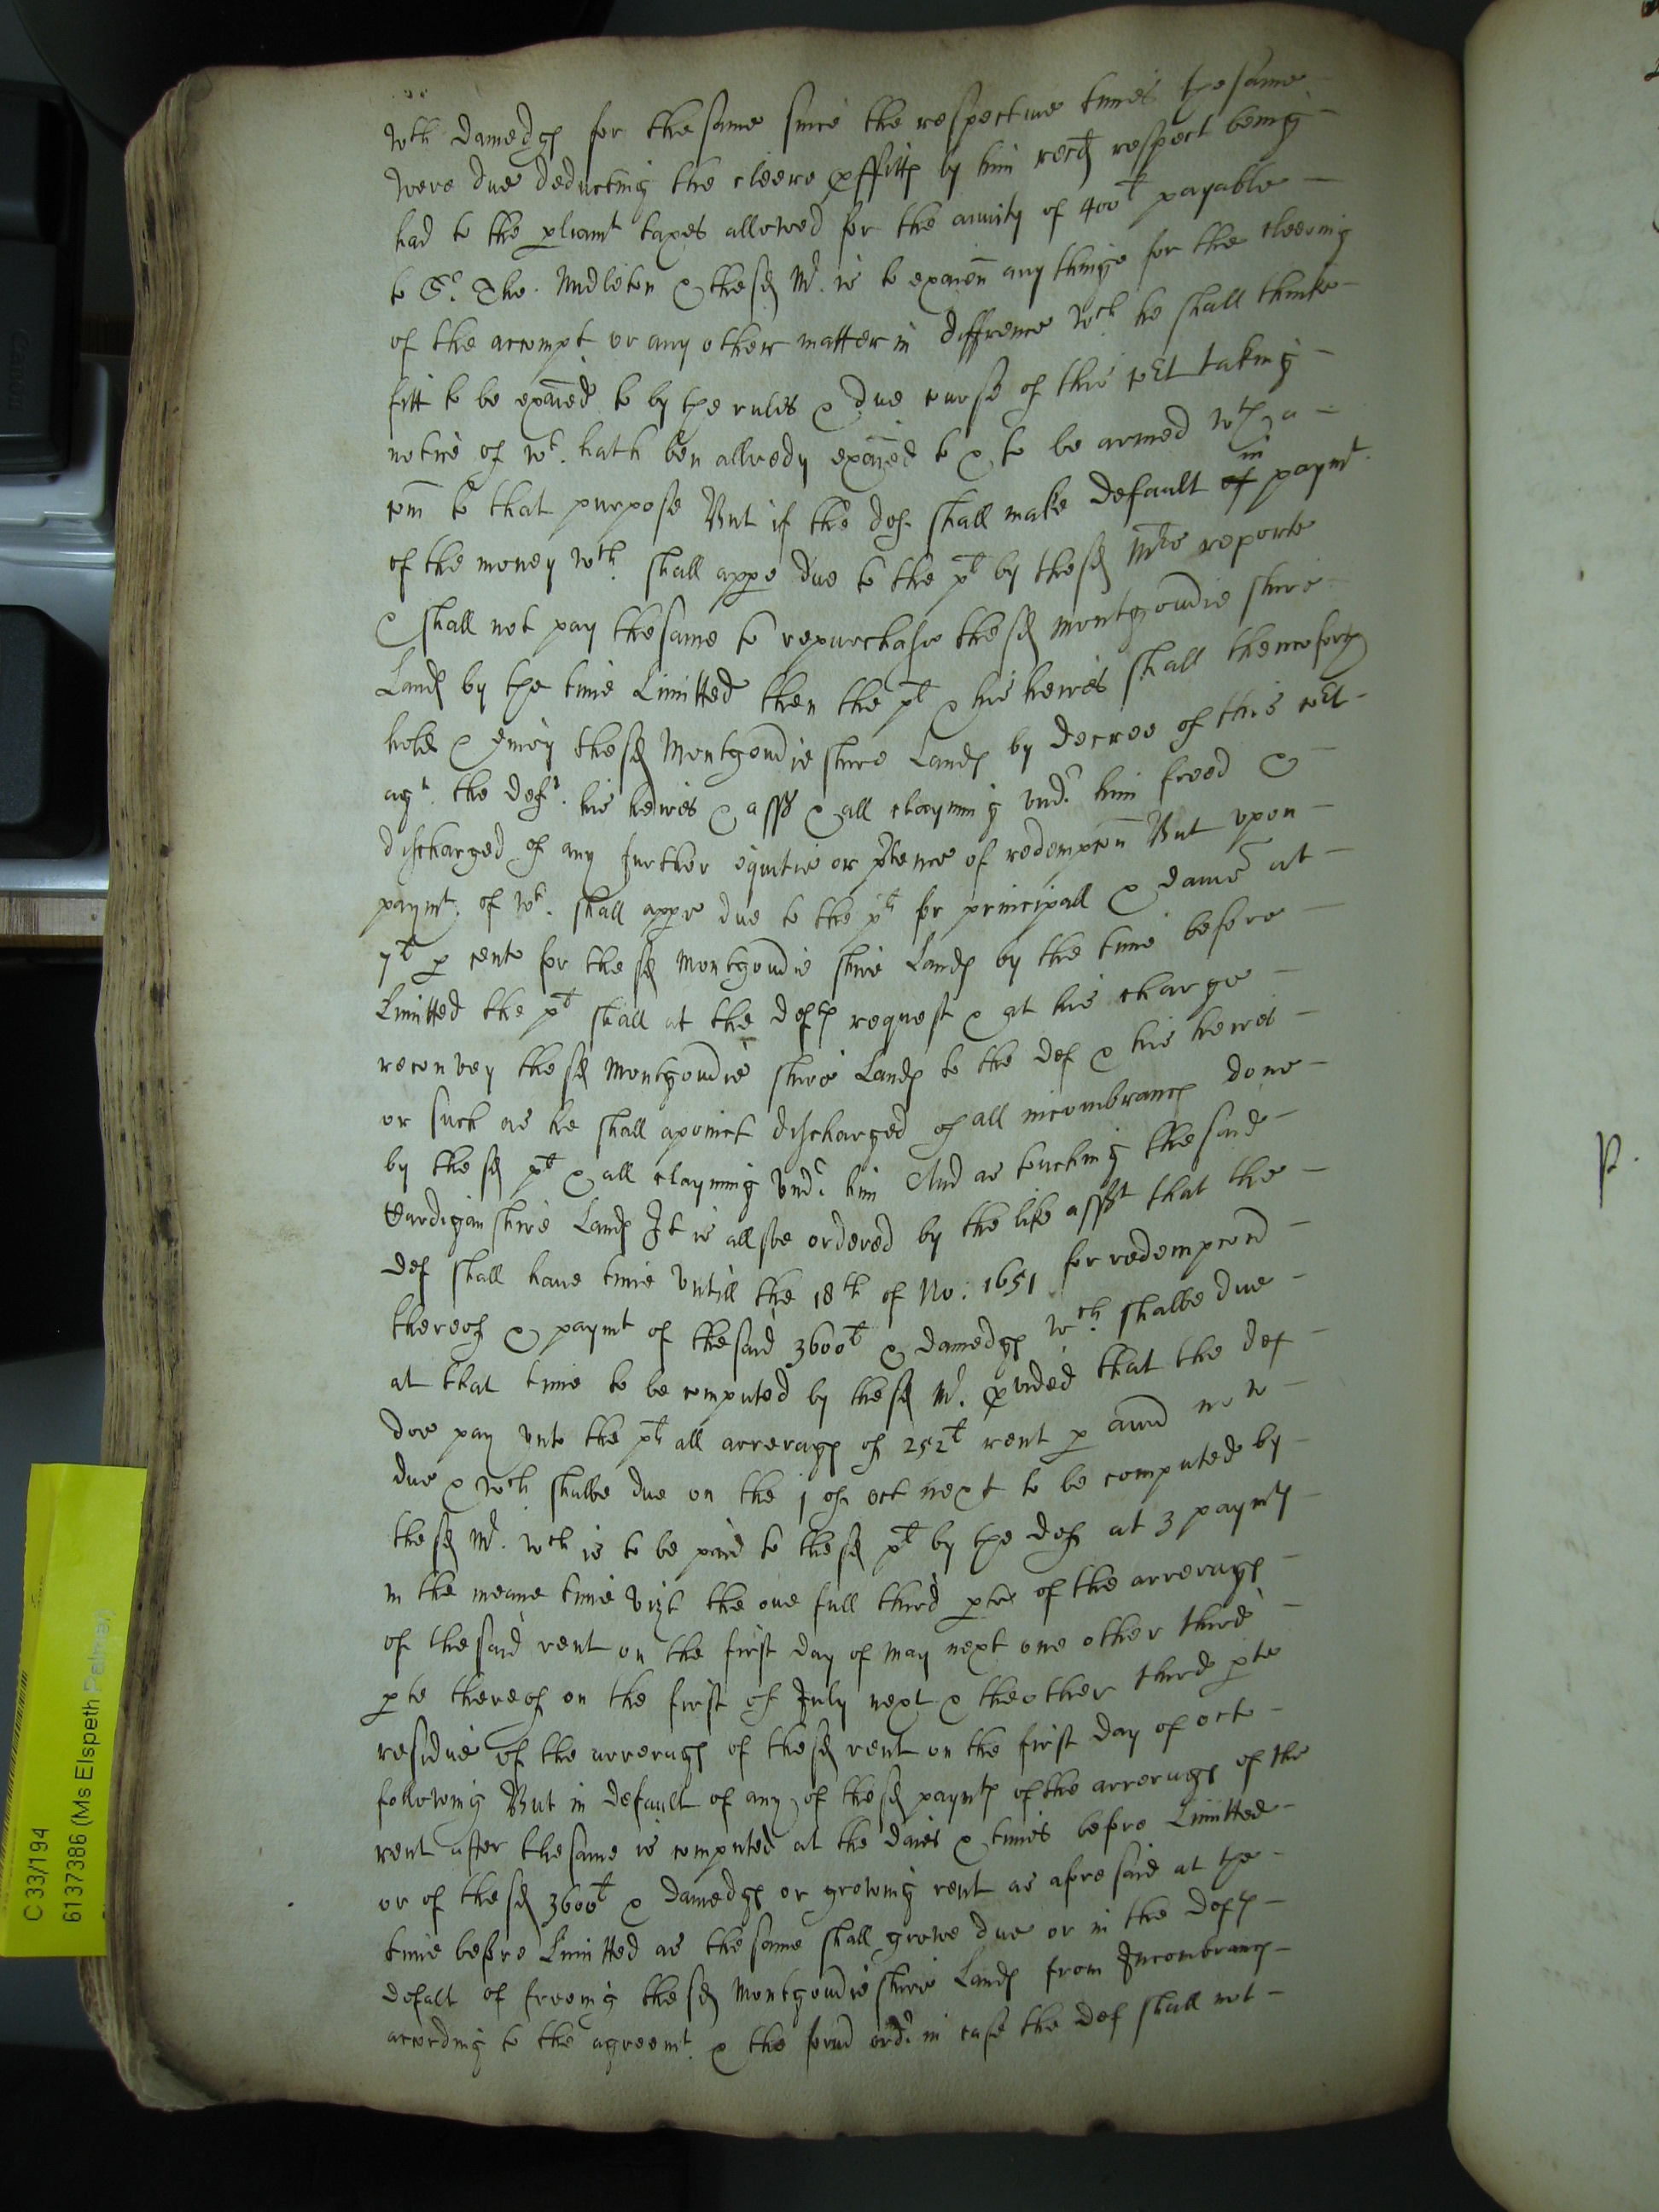 wth damedgs for the same since the respective times the same
were due deducting the cleere pffitts by him recd respect being
had to the pliamt taxes allowed for the anuity of 400l payable
to Sr. Tho. Midleton & the sd Mr. is to exaien any thinge for the cleering
of the accompt or any other matter in diffrence wch he shall thinke
fitt to be exaied to by the rules & due course of this cot taking
notice of wt. hath ben allredy exaied to & to be armed wth a
com to that purpose But if the def shall make default of in paymt
of the money wch. shall appe due to the pt by the sd Mrs reporte
& shall not pay the same to repurchase the sd montgoudie shire
Lands by the time Limitted then the pt & his heires shall thenceforth
hold & enioy the sd Montgoudie shire Lands by decree of this cot
agt. the deft. his heires & asss & all clayming undr him freed &
discharged of any further equitie or ptence of redempcon But upon
paymt. of wt. shall appe due to the pt for principall & dame at
7l p cent for the sd Montgoudie shire Lands by the time before
Limitted the pt shall at the defts request & at his charge
reconvey the sd Montgoudie shire Lands to the def & his heires
or such as he shall apoinct discharged of all incombrancs done
by the sd pt & all clayming undr. him And as touching the said
Cardigan shire Lands It is allsoe ordered by the like asst that the
def shall have time untill the 18th of No: 1651 for redempcon
thereof & paymt of the said 3600l & damedgs wch. shalbe due
at that time to be computed by the sd Mr. pvided that the def
doe pay unto the pt all arrerags of 252l rent p ann now
due & wch shalbe due on the 1 of oct next to be computed by
the sd Mr. wch is to be paid to the sd pt by the def at 3 paymts
in the meane time vizt the one full third pte of the arrerags
of the said rent on the first day of may next one other third
pte thereof on the first of July next & the other third pte
residue of the arrerags of the sd rent on the first day of octo
following But in default of any of the sd paymts of the arrerags of the
rent after the same is computed at the daies & times before Limitted
or of the sd 3600l & damedgs or growing rent as aforesaid at the
time before Limitted as the same shall growe due or in the defts
defalt of freeing the sd Montgoudie shire Lands from Incombrancs
according to the agreemt. & the formd ordr in case the def shall not
P.
C 33/194
6137386 (Ms Elspeth Palmer)
Canon